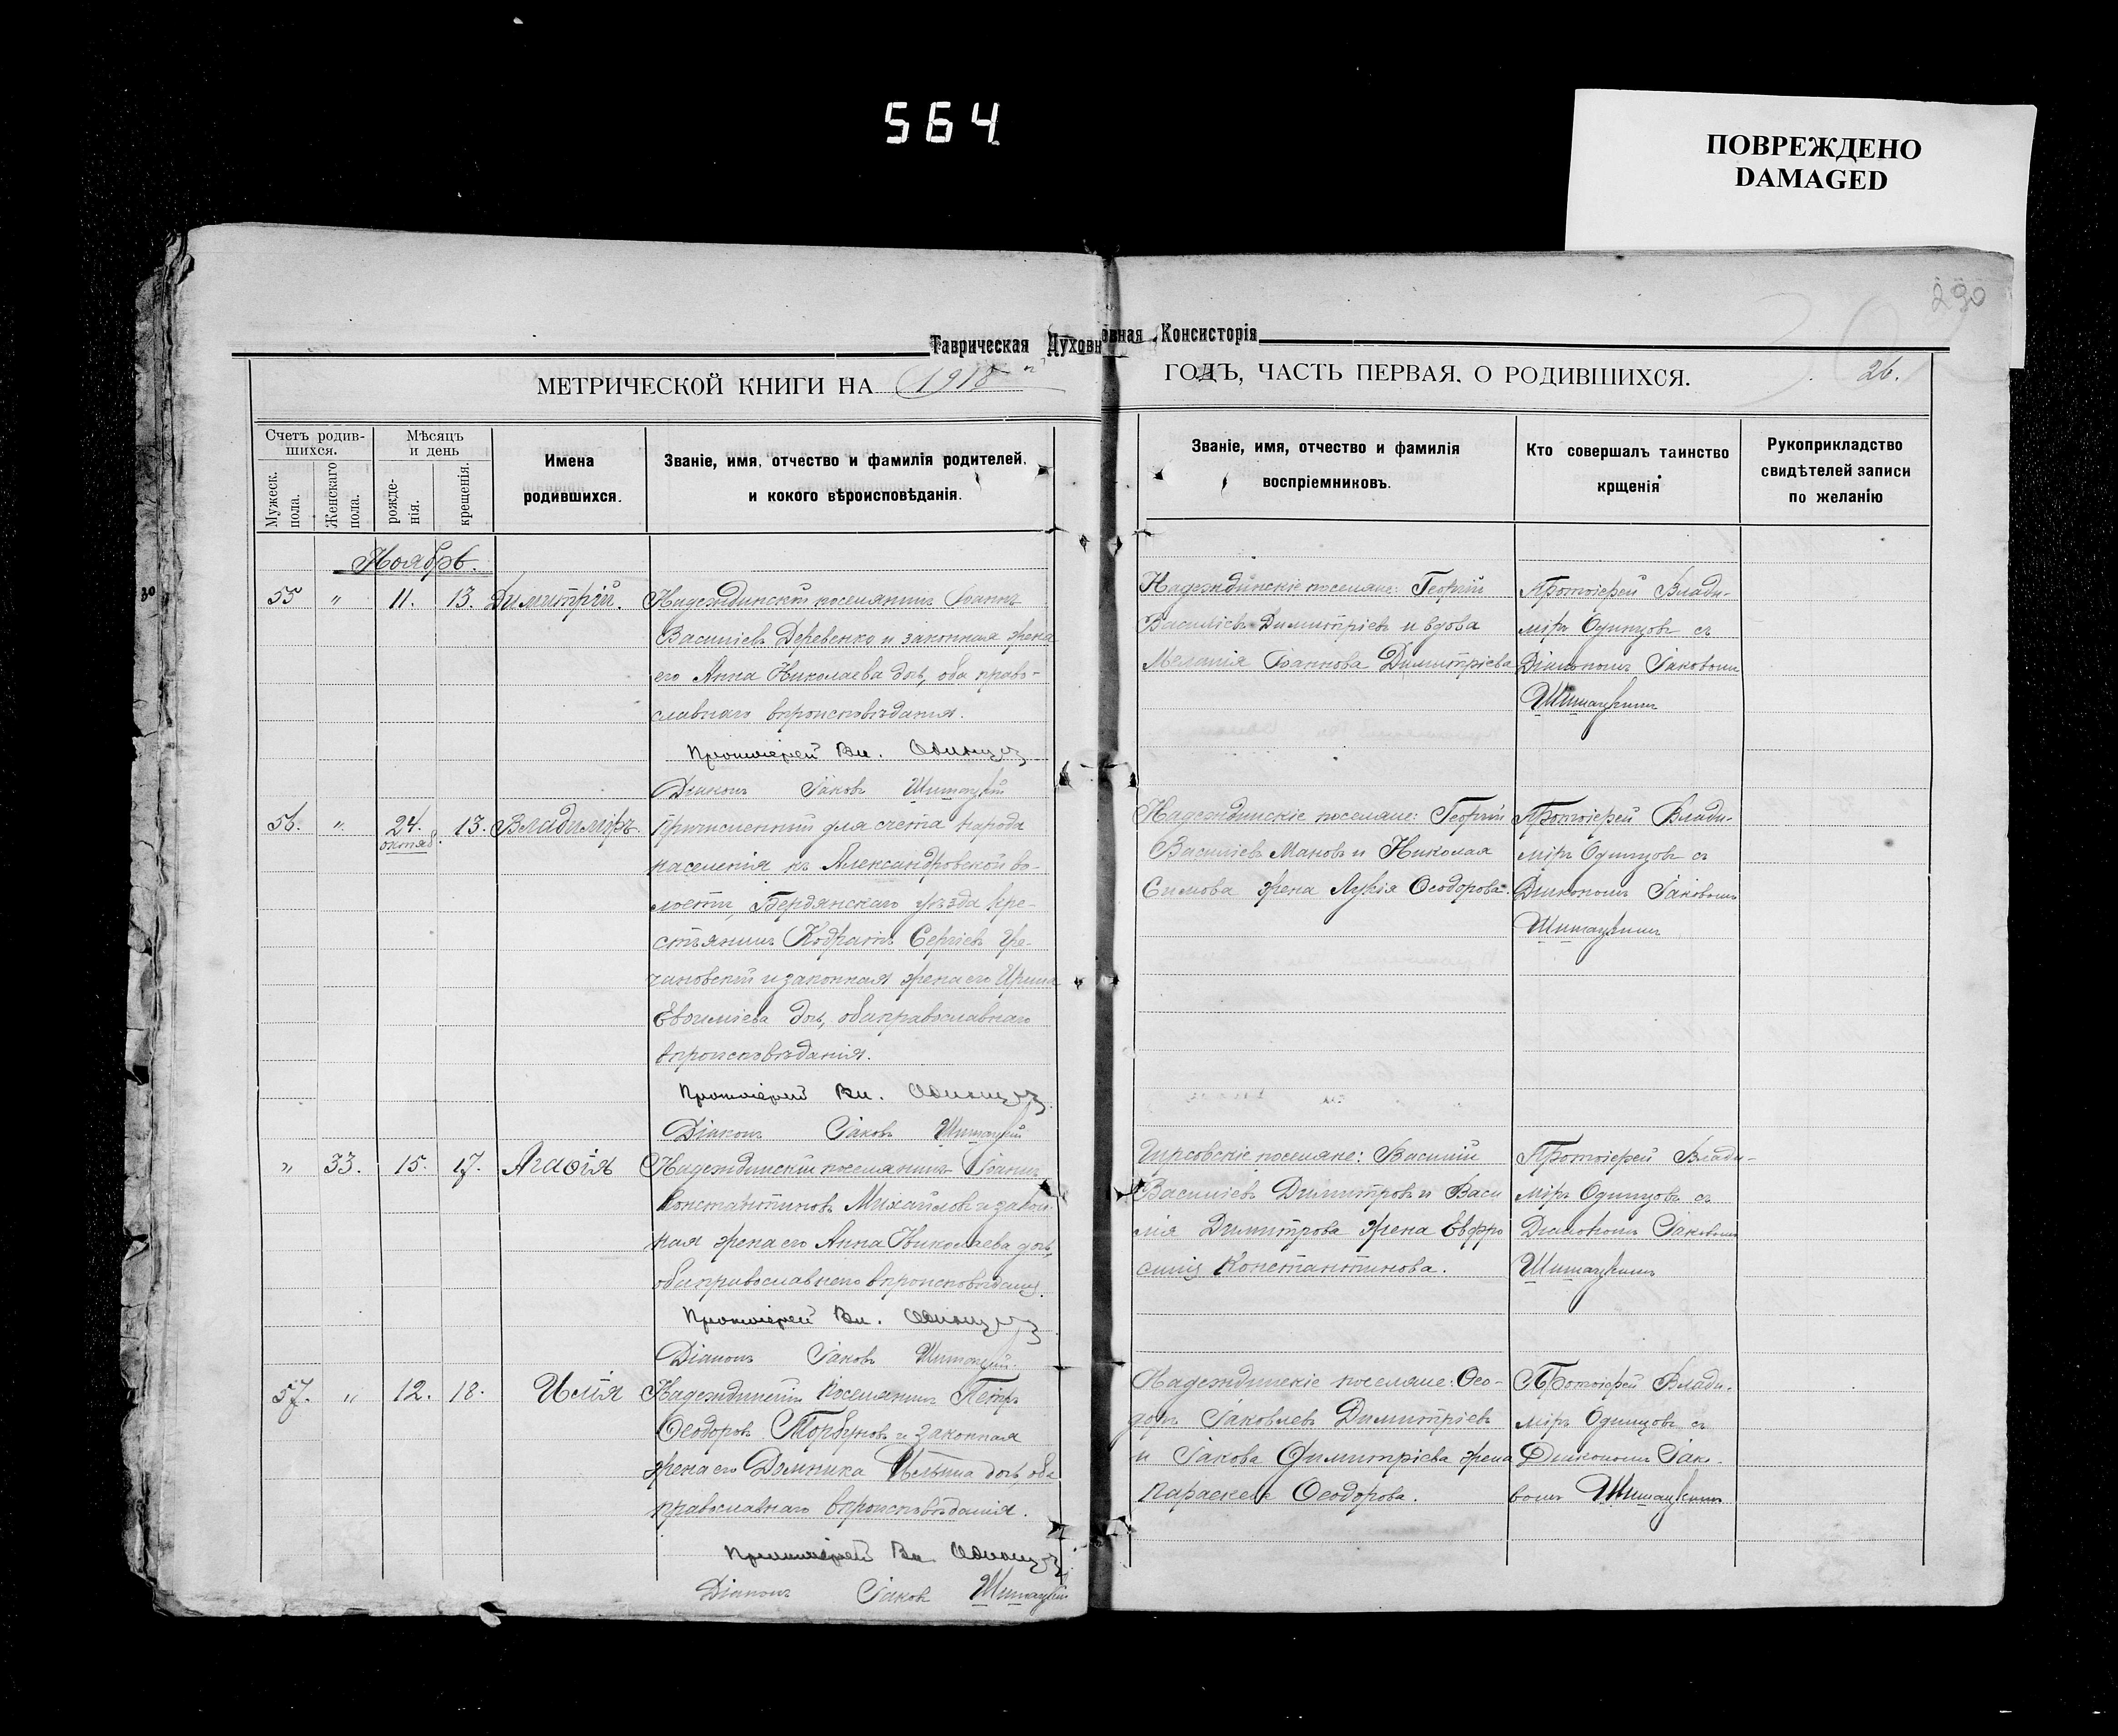 564
ПОВРЕЖДЕНО
DAMAGED
290
Таврическая Духовная Консисторія
МЕТРИЧЕСКОЙ КНИГИ НА 1918 ГОДЪ, ЧАСТЬ ПЕРВАЯ, О РОДИВШИХСЯ.
26.
Счетъ родив-
шихся.
Мужеск. пола.
Женскаго пола.
Мѣсяцъ
и день
рожде-
нія.
крещенія.
Имена
родившихся.
Званіе, имя, отчество и фамилія родителей,
и кокого вѣроисповѣданія.
Званіе, имя, отчество и фамилія
воспріемниковъ.
Кто совершалъ таинство
крщенія
Рукоприкладство
свидѣтелей записи
по желанію
30
Ноябрь.
55 " 11. 13. Димитрій.
Надеждинскій поселянинъ Іоаннъ
Василіевъ Деревенко и законная жена
его Анна Николаева дочь, оба право-
славнаго вѣроисповѣданія.
Протоіерей Вл. Одинцовъ
Діаконъ Іаковъ Шишацкій
Надеждинскіе поселяне: Георгій
Василіевъ Димитріевъ и вдова
Меланія Іоаннова Димитріева
Протоіерей Влади-
міръ Одинцовъ съ
Діакономъ Іаковомъ
Шишацкимъ
56. " 24. октяб. 13. Владиміръ.
Причисленный для счета народо
населенія къ Александровской во-
лости, Бердянскаго уѣзда кре-
стьянинъ Кодратъ Сергіевъ Гре-
чановскій и законная жена его Ирина
Евѳиміева дочь, оба православнаго
вѣроисповѣданія.
Протоіерей Вл. Одинцовъ
Діаконъ Іаковъ Шишацкій
Надеждинскіе поселяне: Георгій
Василіевъ Мановъ и Николая
Симова жена Лукія Ѳеодорова.
Протоіерей Влади-
міръ Одинцовъ съ
Діакономъ Іаковомъ
Шишацкимъ
" 33. 15. 17. Агаѳія
Надеждинскій поселянинъ Іоаннъ
Константиновъ Михайловъ и закон-
ная жена его Анна Николаева дочь,
оба православнаго вѣроисповѣданія.
Протоіерей Вл. Одинцовъ
Діаконъ Іаковъ Шишацкій.
Гирсовскіе поселяне: Василій
Василіевъ Димитровъ и Васи
лія Димитрова жена Евфро
синія Константинова.
Протоіерей Влади-
міръ Одинцовъ съ
Діакономъ Іаковомъ
Шишацкимъ
57. " 12. 18. Илія
Надеждинскій поселянинъ Петръ
Ѳеодоровъ и законная
жена его Домника дочь, оба
православнаго вѣроисповѣданія.
Протоіерей Вл. Одинцовъ
Діаконъ Іаковъ Шишацкій
Надеждинскіе поселяне: Ѳео-
доръ Іаковлевъ Димитріевъ
и Іакова Димитріева жена
Параскева Ѳеодорова.
Протоіерей Влади-
міръ Одинцовъ съ
Діакономъ Іако-
вомъ Шишацкимъ